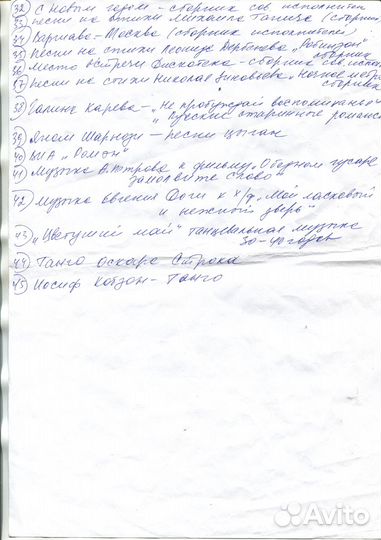 32) С Новым годом - сборник сов. исполнител
33) Песни на стихи Михаила Танича (сборник
34) Карнавал - Москва (сборник исполнителей)
35) Песни на стихи Леонида Дербенева "Робинзон" сборник
36) Место встречи Дискотека - сборник сов. исп
37) Песни на стихи Николая Зиновьева "Ночное
сборник
38) Галина Карева - "Не пробуждай воспоминаний"
"Русский старинный романс
39) Песни цыган
40) ВИА "Ромэн"
41) Музыка А. Петрова к фильму "О бедном гусаре
замолвите слово"
42) музыка Евгения Доги к х/ф "Мой ласковый
и нежный зверь"
43) "Цветущий май" танцевальная музыка
30-40 годов
44) Танго Оскара Строка
45) Иосиф Кобзон - Танго
Avito